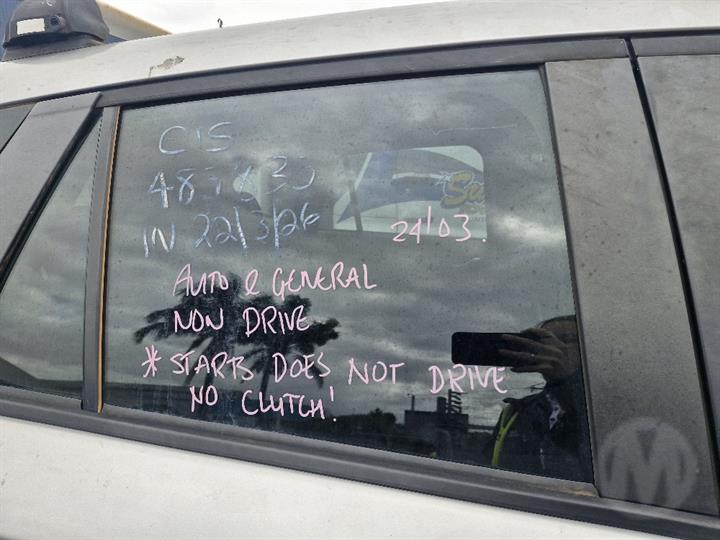 CIS
483833
IN 22/3/26
24/03.
AUTO & GENERAL
NON DRIVE
* STARTS DOES NOT DRIVE
NO CLUTCH!
M